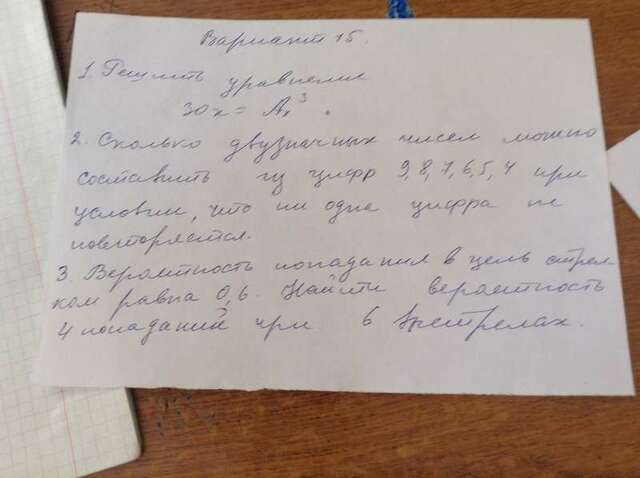 Вариант 15.
1. Решить уравнения
30x = Aₓ³.
2. Сколько двузначных чисел можно
составить из цифр 9,8,7,6,5,4 при
условии, что ни одна цифра не
повторяется.
3. Вероятность попадания в цель стрел
ком равна 0,6. Найти вероятность
4 попаданий при 6 выстрелах.